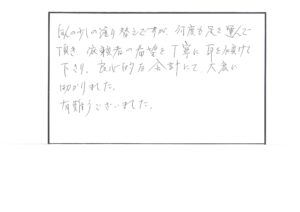 ほんの少しの塗り替えですが、何度も足を運んで
頂き、依頼者の希望を丁寧に耳を傾けて
下さり、良心的な会計にて大変に
助かりました。
有難うございました。